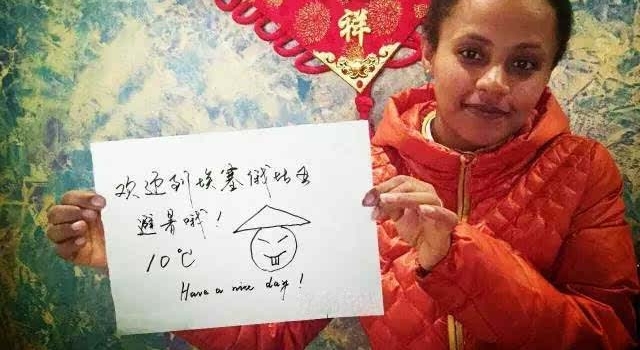 祥
欢迎到埃塞俄比亚
避暑哦！
10℃
Have a nice day!